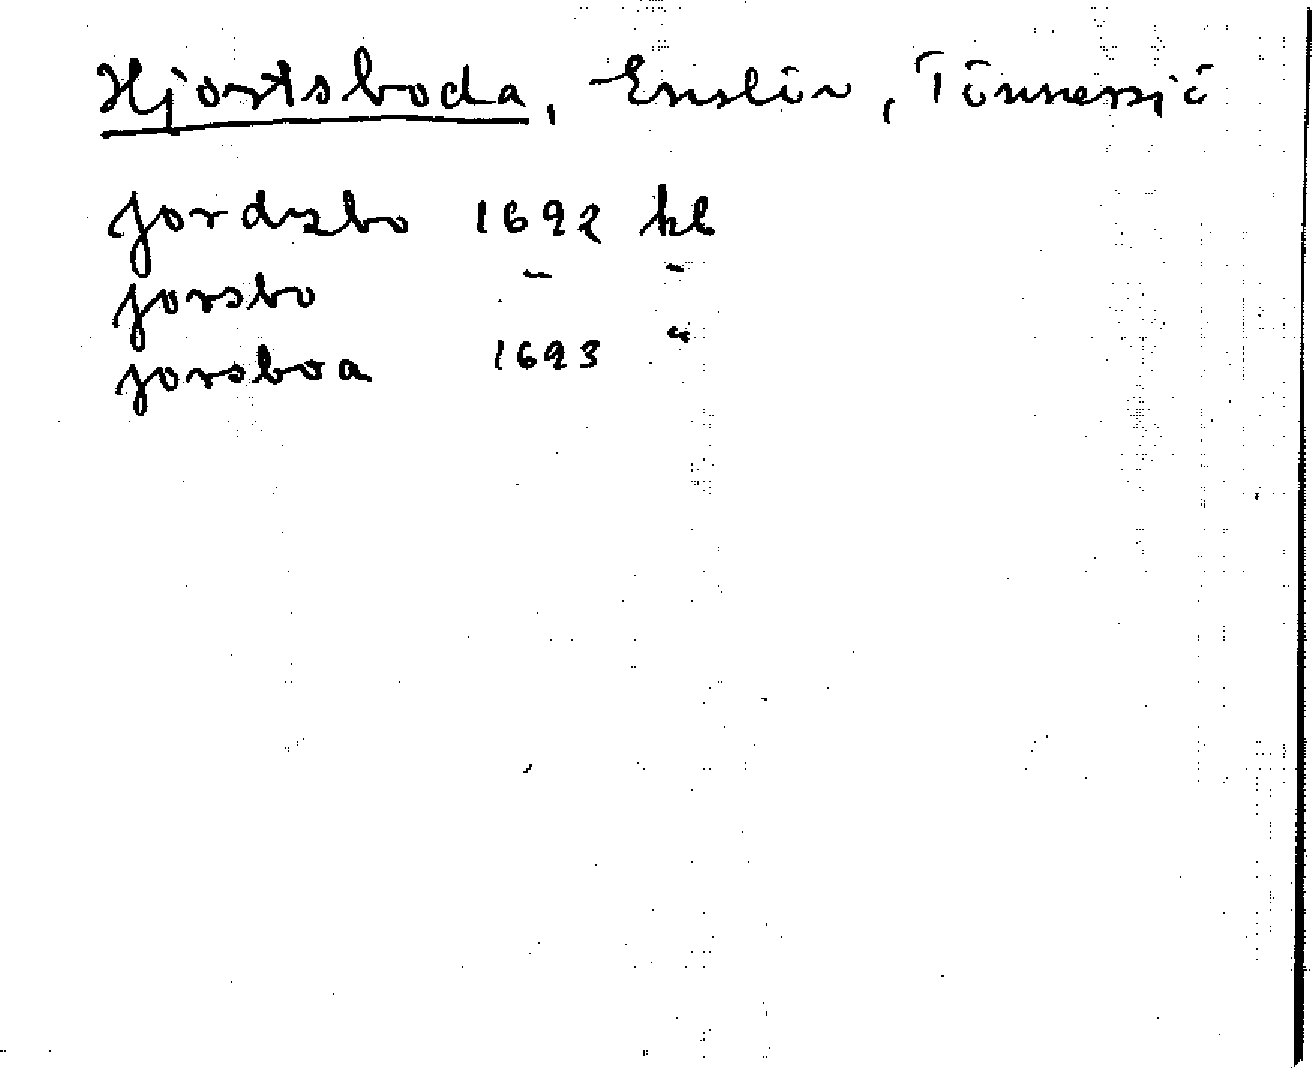 Hjortsboda, Enslöv, Tönnersjö
Jordzbo 1692 kl
Jorsbo – –
Jorsboa 1693 "